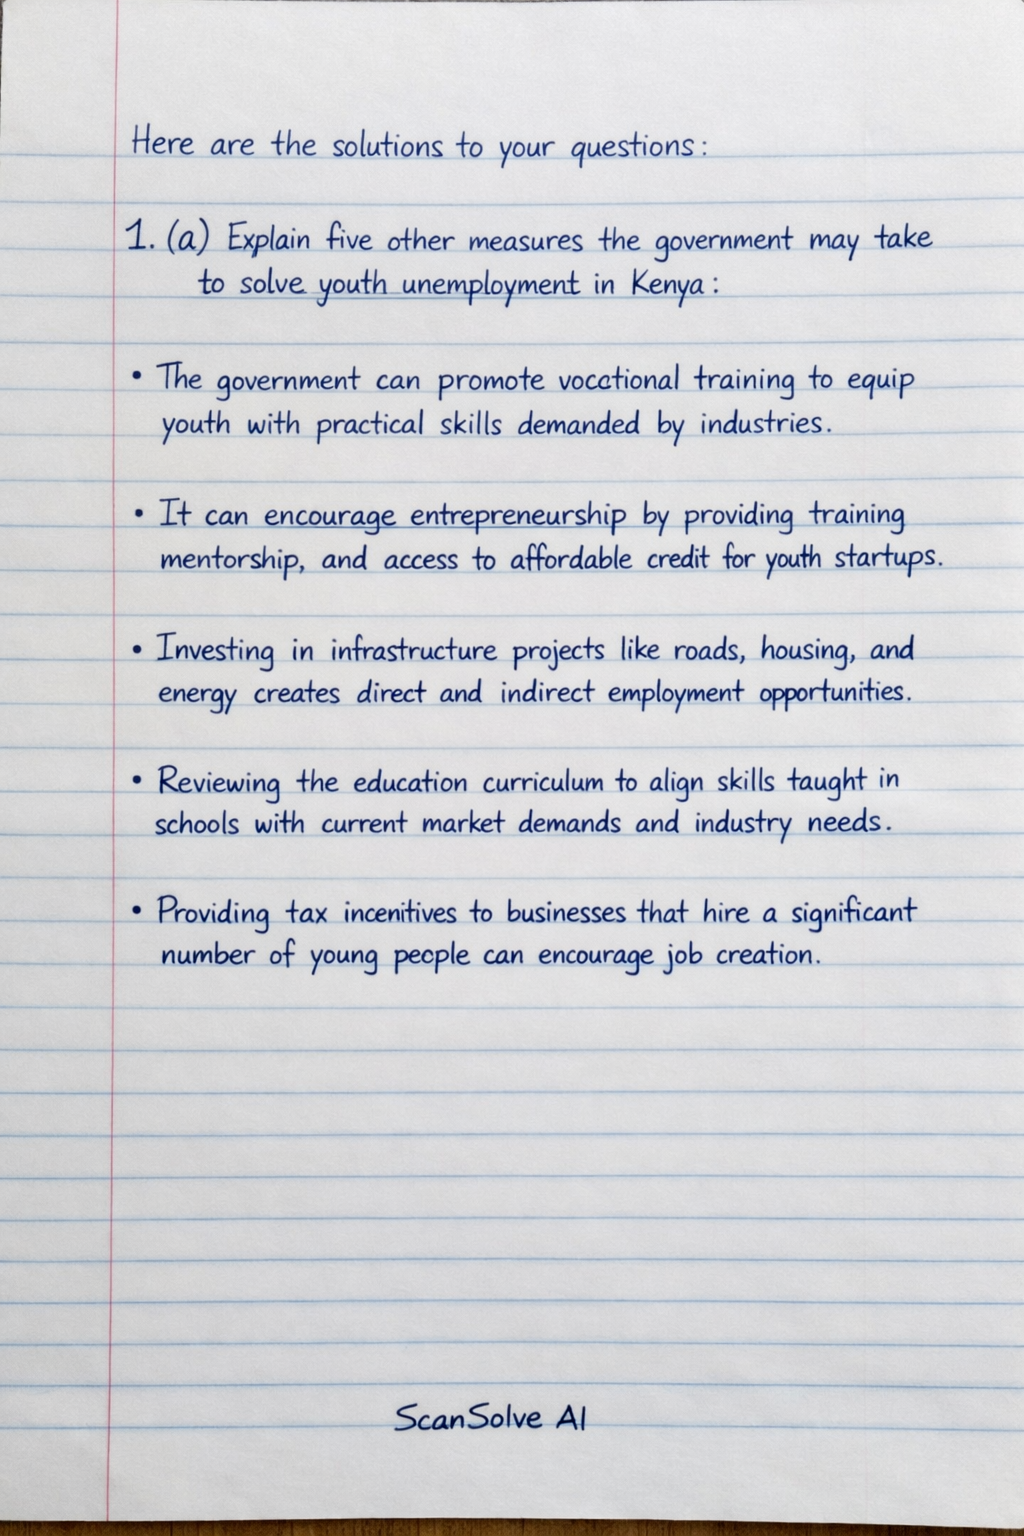 Here are the solutions to your questions:
1. (a) Explain five other measures the government may take
to solve youth unemployment in Kenya:
• The government can promote vocational training to equip
youth with practical skills demanded by industries.
• It can encourage entrepreneurship by providing training
mentorship, and access to affordable credit for youth startups.
• Investing in infrastructure projects like roads, housing, and
energy creates direct and indirect employment opportunities.
• Reviewing the education curriculum to align skills taught in
schools with current market demands and industry needs.
• Providing tax incenitives to businesses that hire a significant
number of young people can encourage job creation.
ScanSolve AI